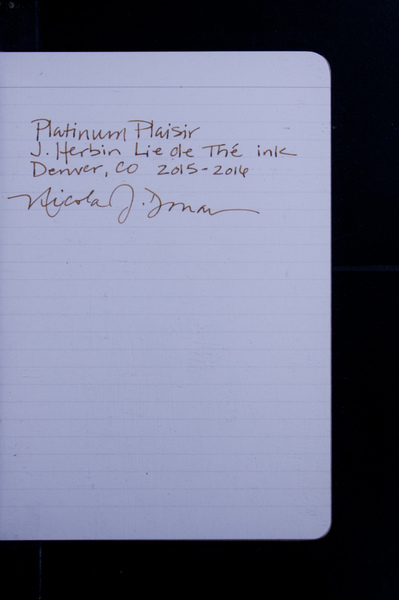 Platinum Plaisir
J. Herbin Lie de Thé ink
Denver, CO 2015-2016
Nicola J.